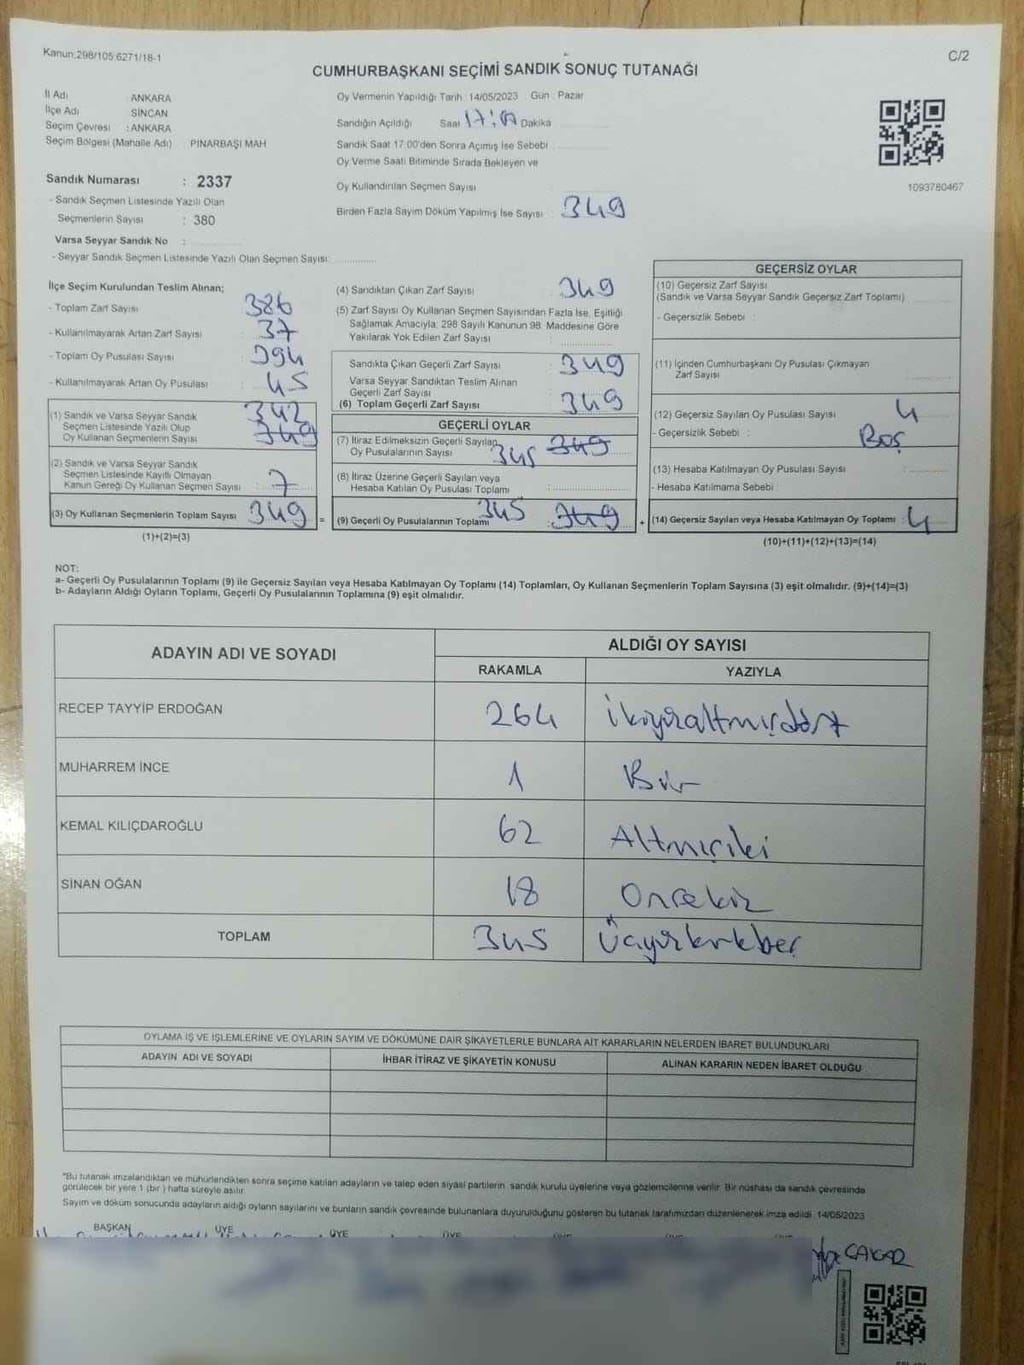 Kanun:298/105 6271/18-1
C/2
CUMHURBAŞKANI SEÇİMİ SANDIK SONUÇ TUTANAĞI
İl Adı ANKARA
İlçe Adı SİNCAN
Seçim Çevresi : ANKARA
Seçim Bölgesi (Mahalle Adı) PINARBAŞI MAH
Sandık Numarası : 2337
- Sandık Seçmen Listesinde Yazılı Olan
Seçmenlerin Sayısı : 380
Varsa Seyyar Sandık No :
- Seyyar Sandık Seçmen Listesinde Yazılı Olan Seçmen Sayısı:
Oy Vermenin Yapıldığı Tarih : 14/05/2023 Gün : Pazar
Sandığın Açıldığı Saat 17:00 Dakika
Sandık Saat 17:00'den Sonra Açımış İse Sebebi
Oy Verme Saati Bitiminde Sırada Bekleyen ve
Oy Kullandırılan Seçmen Sayısı
Birden Fazla Sayım Döküm Yapılmış İse Sayısı : 349
1093780467
İlçe Seçim Kurulundan Teslim Alınan;
- Toplam Zarf Sayısı : 386
- Kullanılmayarak Artan Zarf Sayısı : 37
- Toplam Oy Pusulası Sayısı : 394
- Kullanılmayarak Artan Oy Pusulası : 45
(1) Sandık ve Varsa Seyyar Sandık 342
Seçmen Listesinde Yazılı Olup
Oy Kullanan Seçmenlerin Sayısı 349
(2) Sandık ve Varsa Seyyar Sandık
Seçmen Listesinde Kayıtlı Olmayan
Kanun Gereği Oy Kullanan Seçmen Sayısı : 7
(3) Oy Kullanan Seçmenlerin Toplam Sayısı : 349 =
(1)+(2)=(3)
(4) Sandıktan Çıkan Zarf Sayısı 349
(5) Zarf Sayısı Oy Kullanan Seçmen Sayısından Fazla İse, Eşitliği
Sağlamak Amacıyla, 298 Sayılı Kanunun 98. Maddesine Göre
Yakılarak Yok Edilen Zarf Sayısı
Sandıkta Çıkan Geçerli Zarf Sayısı 349
Varsa Seyyar Sandıktan Teslim Alınan
Geçerli Zarf Sayısı
(6) Toplam Geçerli Zarf Sayısı 349
GEÇERLİ OYLAR
(7) İtiraz Edilmeksizin Geçerli Sayılan
Oy Pusulalarının Sayısı 345 349
(8) İtiraz Üzerine Geçerli Sayılan veya
Hesaba Katılan Oy Pusulası Toplamı
(9) Geçerli Oy Pusulalarının Toplamı 345 349 +
GEÇERSİZ OYLAR
(10) Geçersiz Zarf Sayısı
(Sandık ve Varsa Seyyar Sandık Geçersiz Zarf Toplamı)
- Geçersizlik Sebebi :
(11) İçinden Cumhurbaşkanı Oy Pusulası Çıkmayan
Zarf Sayısı
(12) Geçersiz Sayılan Oy Pusulası Sayısı 4
- Geçersizlik Sebebi : Boş
(13) Hesaba Katılmayan Oy Pusulası Sayısı
- Hesaba Katılmama Sebebi :
(14) Geçersiz Sayılan veya Hesaba Katılmayan Oy Toplamı : 4
(10)+(11)+(12)+(13)=(14)
NOT:
a- Geçerli Oy Pusulalarının Toplamı (9) ile Geçersiz Sayılan veya Hesaba Katılmayan Oy Toplamı (14) Toplamları, Oy Kullanan Seçmenlerin Toplam Sayısına (3) eşit olmalıdır. (9)+(14)=(3)
b- Adayların Aldığı Oyların Toplamı, Geçerli Oy Pusulalarının Toplamına (9) eşit olmalıdır.
ADAYIN ADI VE SOYADI ALDIĞI OY SAYISI
RAKAMLA YAZIYLA
RECEP TAYYİP ERDOĞAN 264 ikiyüzaltmışdört
MUHARREM İNCE 1 Bir
KEMAL KILIÇDAROĞLU 62 Altmışiki
SİNAN OĞAN 18 Onsekiz
TOPLAM 345 Üçyüzkırkbeş
OYLAMA İŞ VE İŞLEMLERİNE VE OYLARIN SAYIM VE DÖKÜMÜNE DAİR ŞİKAYETLERLE BUNLARA AİT KARARLARIN NELERDEN İBARET BULUNDUKLARI
ADAYIN ADI VE SOYADI İHBAR İTİRAZ VE ŞİKAYETİN KONUSU ALINAN KARARIN NEDEN İBARET OLDUĞU
*Bu tutanak imzalandıktan ve mühürlendikten sonra seçime katılan adayların ve talep eden siyasi partilerin sandık kurulu üyelerine veya gözlemcilerine verilir. Bir nüshası da sandık çevresinde
görülecek bir yere 1 (bir) hafta süreyle asılır.
Sayım ve döküm sonucunda adayların aldığı oyların sayılarını ve bunların sandık çevresinde bulunanlara duyurulduğunu gösteren bu tutanak tarafımızdan düzenlenerek imza edildi. 14/05/2023
BAŞKAN ÜYE ÜYE